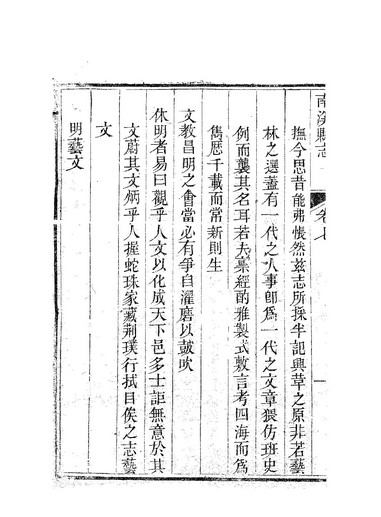 南溪縣志 卷七 一
撫今思昔能弗悵然茲志所採半記輿草之原非若藝
林之選蓋有一代之人事卽為一代之文章猥仿班史
例而襲其名耳若夫纂經酌雅製式敷言考四海而為
雋歷千載而常新則生
文教昌明之會當必有爭自濯磨以鼓吹
休明者易曰觀乎人文以化成天下邑多士詎無意於其
文蔚其文炳乎人握蛇珠家藏荆璞行拭目俟之志藝
文
明藝文